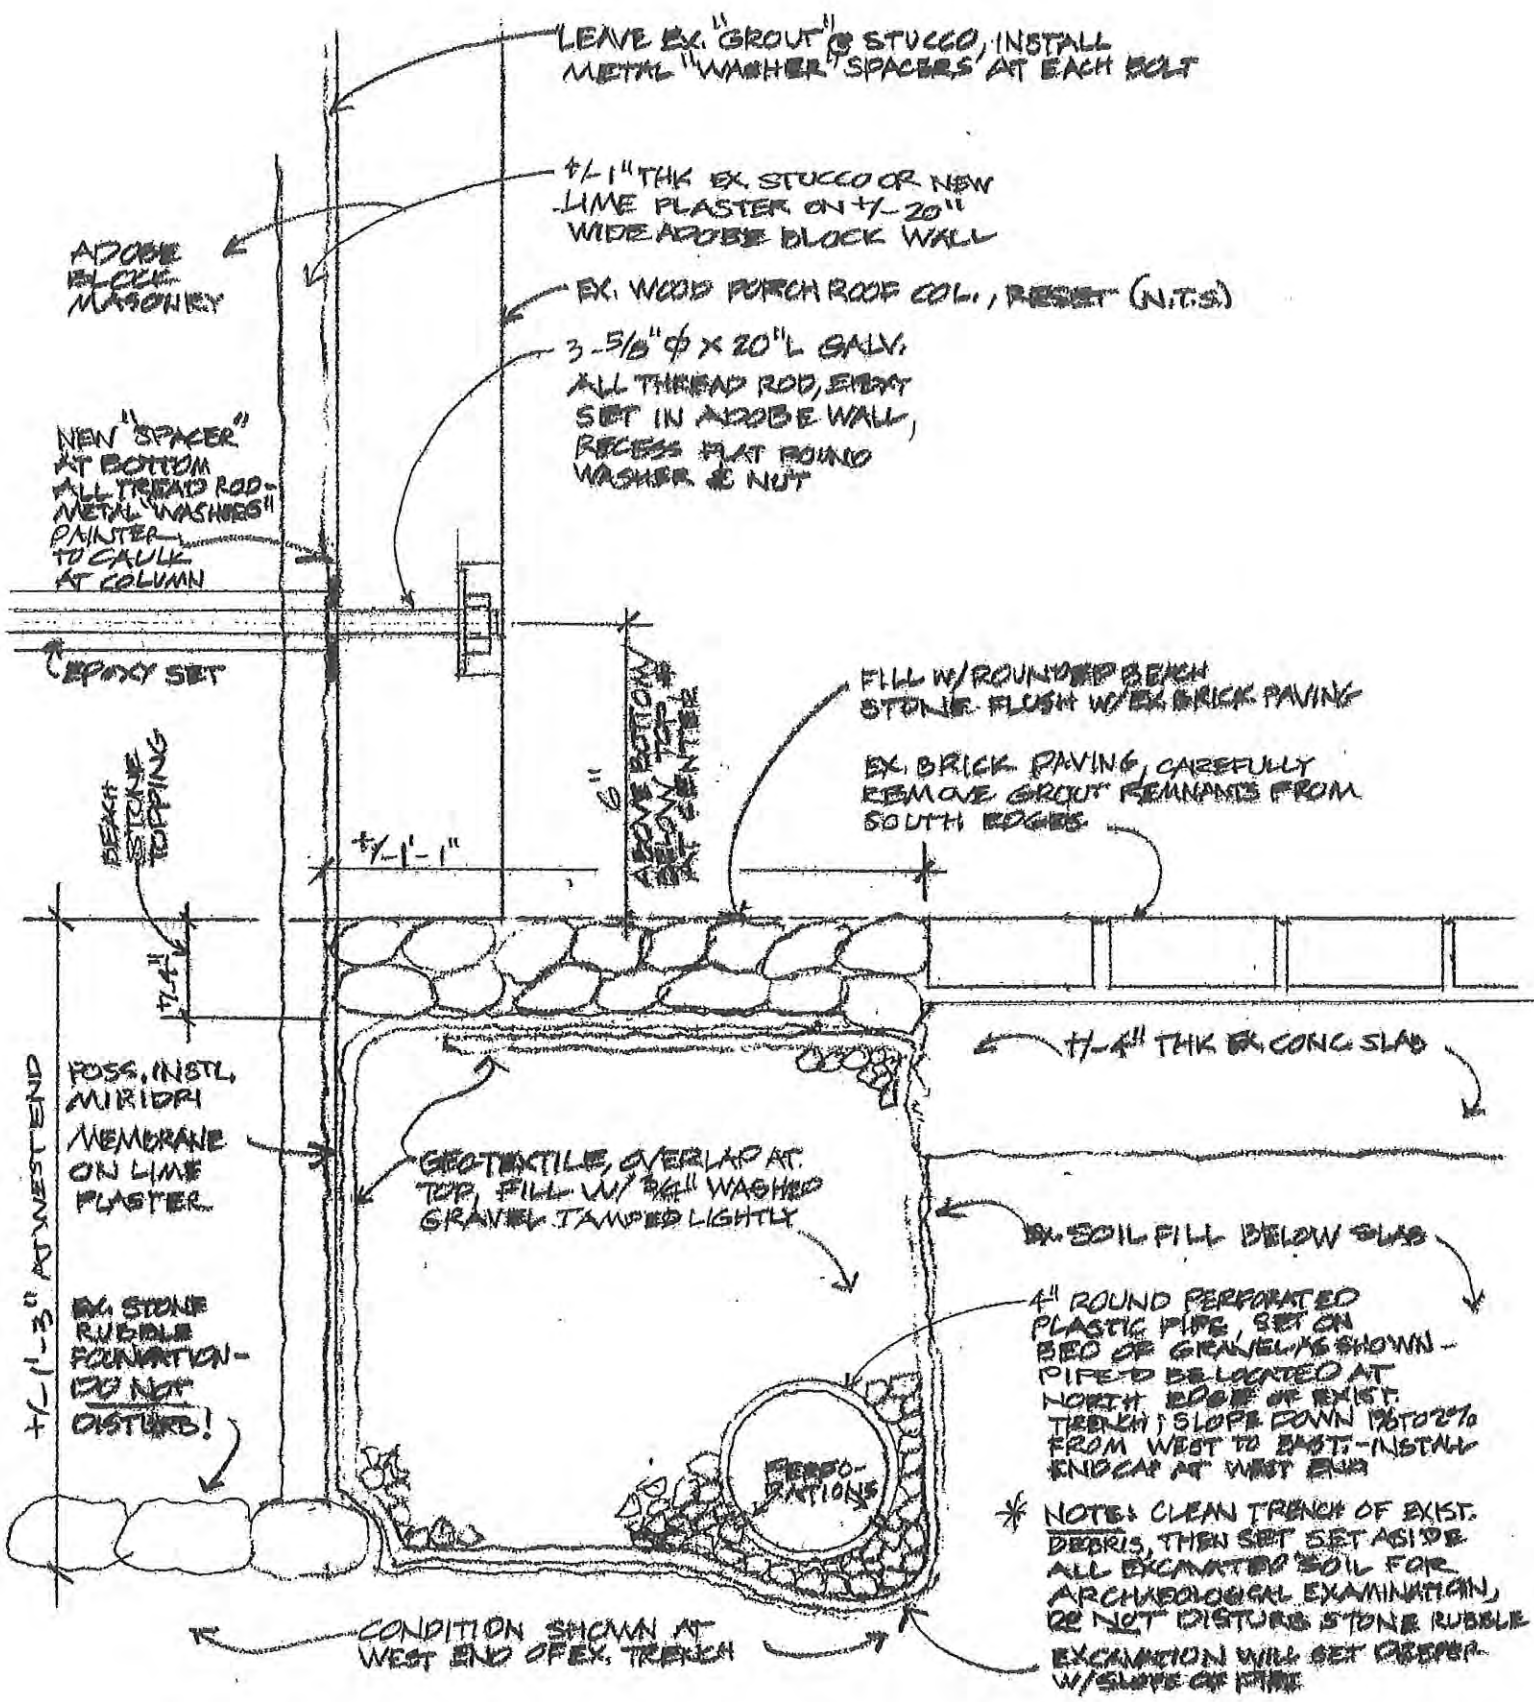 LEAVE EX. "GROUT" @ STUCCO, INSTALL
METAL "WASHER" SPACERS AT EACH BOLT
+/-1" THK EX. STUCCO OR NEW
LIME PLASTER ON +/-20"
WIDE ADOBE BLOCK WALL
ADOBE
BLOCK
MASONRY
EX. WOOD PORCH ROOF COL., RESET (N.T.S.)
3-5/8" ϕ X 20" L GALV.
ALL THREAD ROD, EPOXY
SET IN ADOBE WALL,
RECESS FLAT ROUND
WASHER & NUT
NEW "SPACER"
AT BOTTOM
ALL TREAD ROD-
METAL "WASHERS"
PAINTER
TO CAULK
AT COLUMN
EPOXY SET
6"
ABOVE BOTTOM
BELOW TOP &
AT CENTER
FILL W/ROUNDED BEACH
STONE FLUSH W/EX. BRICK PAVING
EX. BRICK PAVING, CAREFULLY
REMOVE GROUT REMNANTS FROM
SOUTH EDGES
BEACH
STONE
TOPPING
+/-1'-1"
+/-4"
+/-4" THK EX. CONC. SLAB
POSS. INSTL.
MIRIDRI
MEMBRANE
ON LIME
PLASTER
GEOTEXTILE, OVERLAP AT
TOP, FILL W/ 3/4" WASHED
GRAVEL TAMPED LIGHTLY
EX. SOIL FILL BELOW SLAB
+/-1'-3" AT WEST END
EX. STONE
RUBBLE
FOUNDATION-
DO NOT
DISTURB!
4" ROUND PERFORATED
PLASTIC PIPE, SET ON
BED OF GRAVEL AS SHOWN-
PIPE TO BE LOCATED AT
NORTH EDGE OF EXIST.
TRENCH; SLOPE DOWN 1% TO 2%
FROM WEST TO EAST.-INSTALL
ENDCAP AT WEST END
PERFO-
RATIONS
* NOTE: CLEAN TRENCH OF EXIST.
DEBRIS, THEN SET SET ASIDE
ALL EXCAVATED SOIL FOR
ARCHAEOLOGICAL EXAMINATION,
DO NOT DISTURB STONE RUBBLE
CONDITION SHOWN AT
WEST END OF EX. TRENCH
EXCAVATION WILL GET DEEPER
W/SLOPE OF PIPE